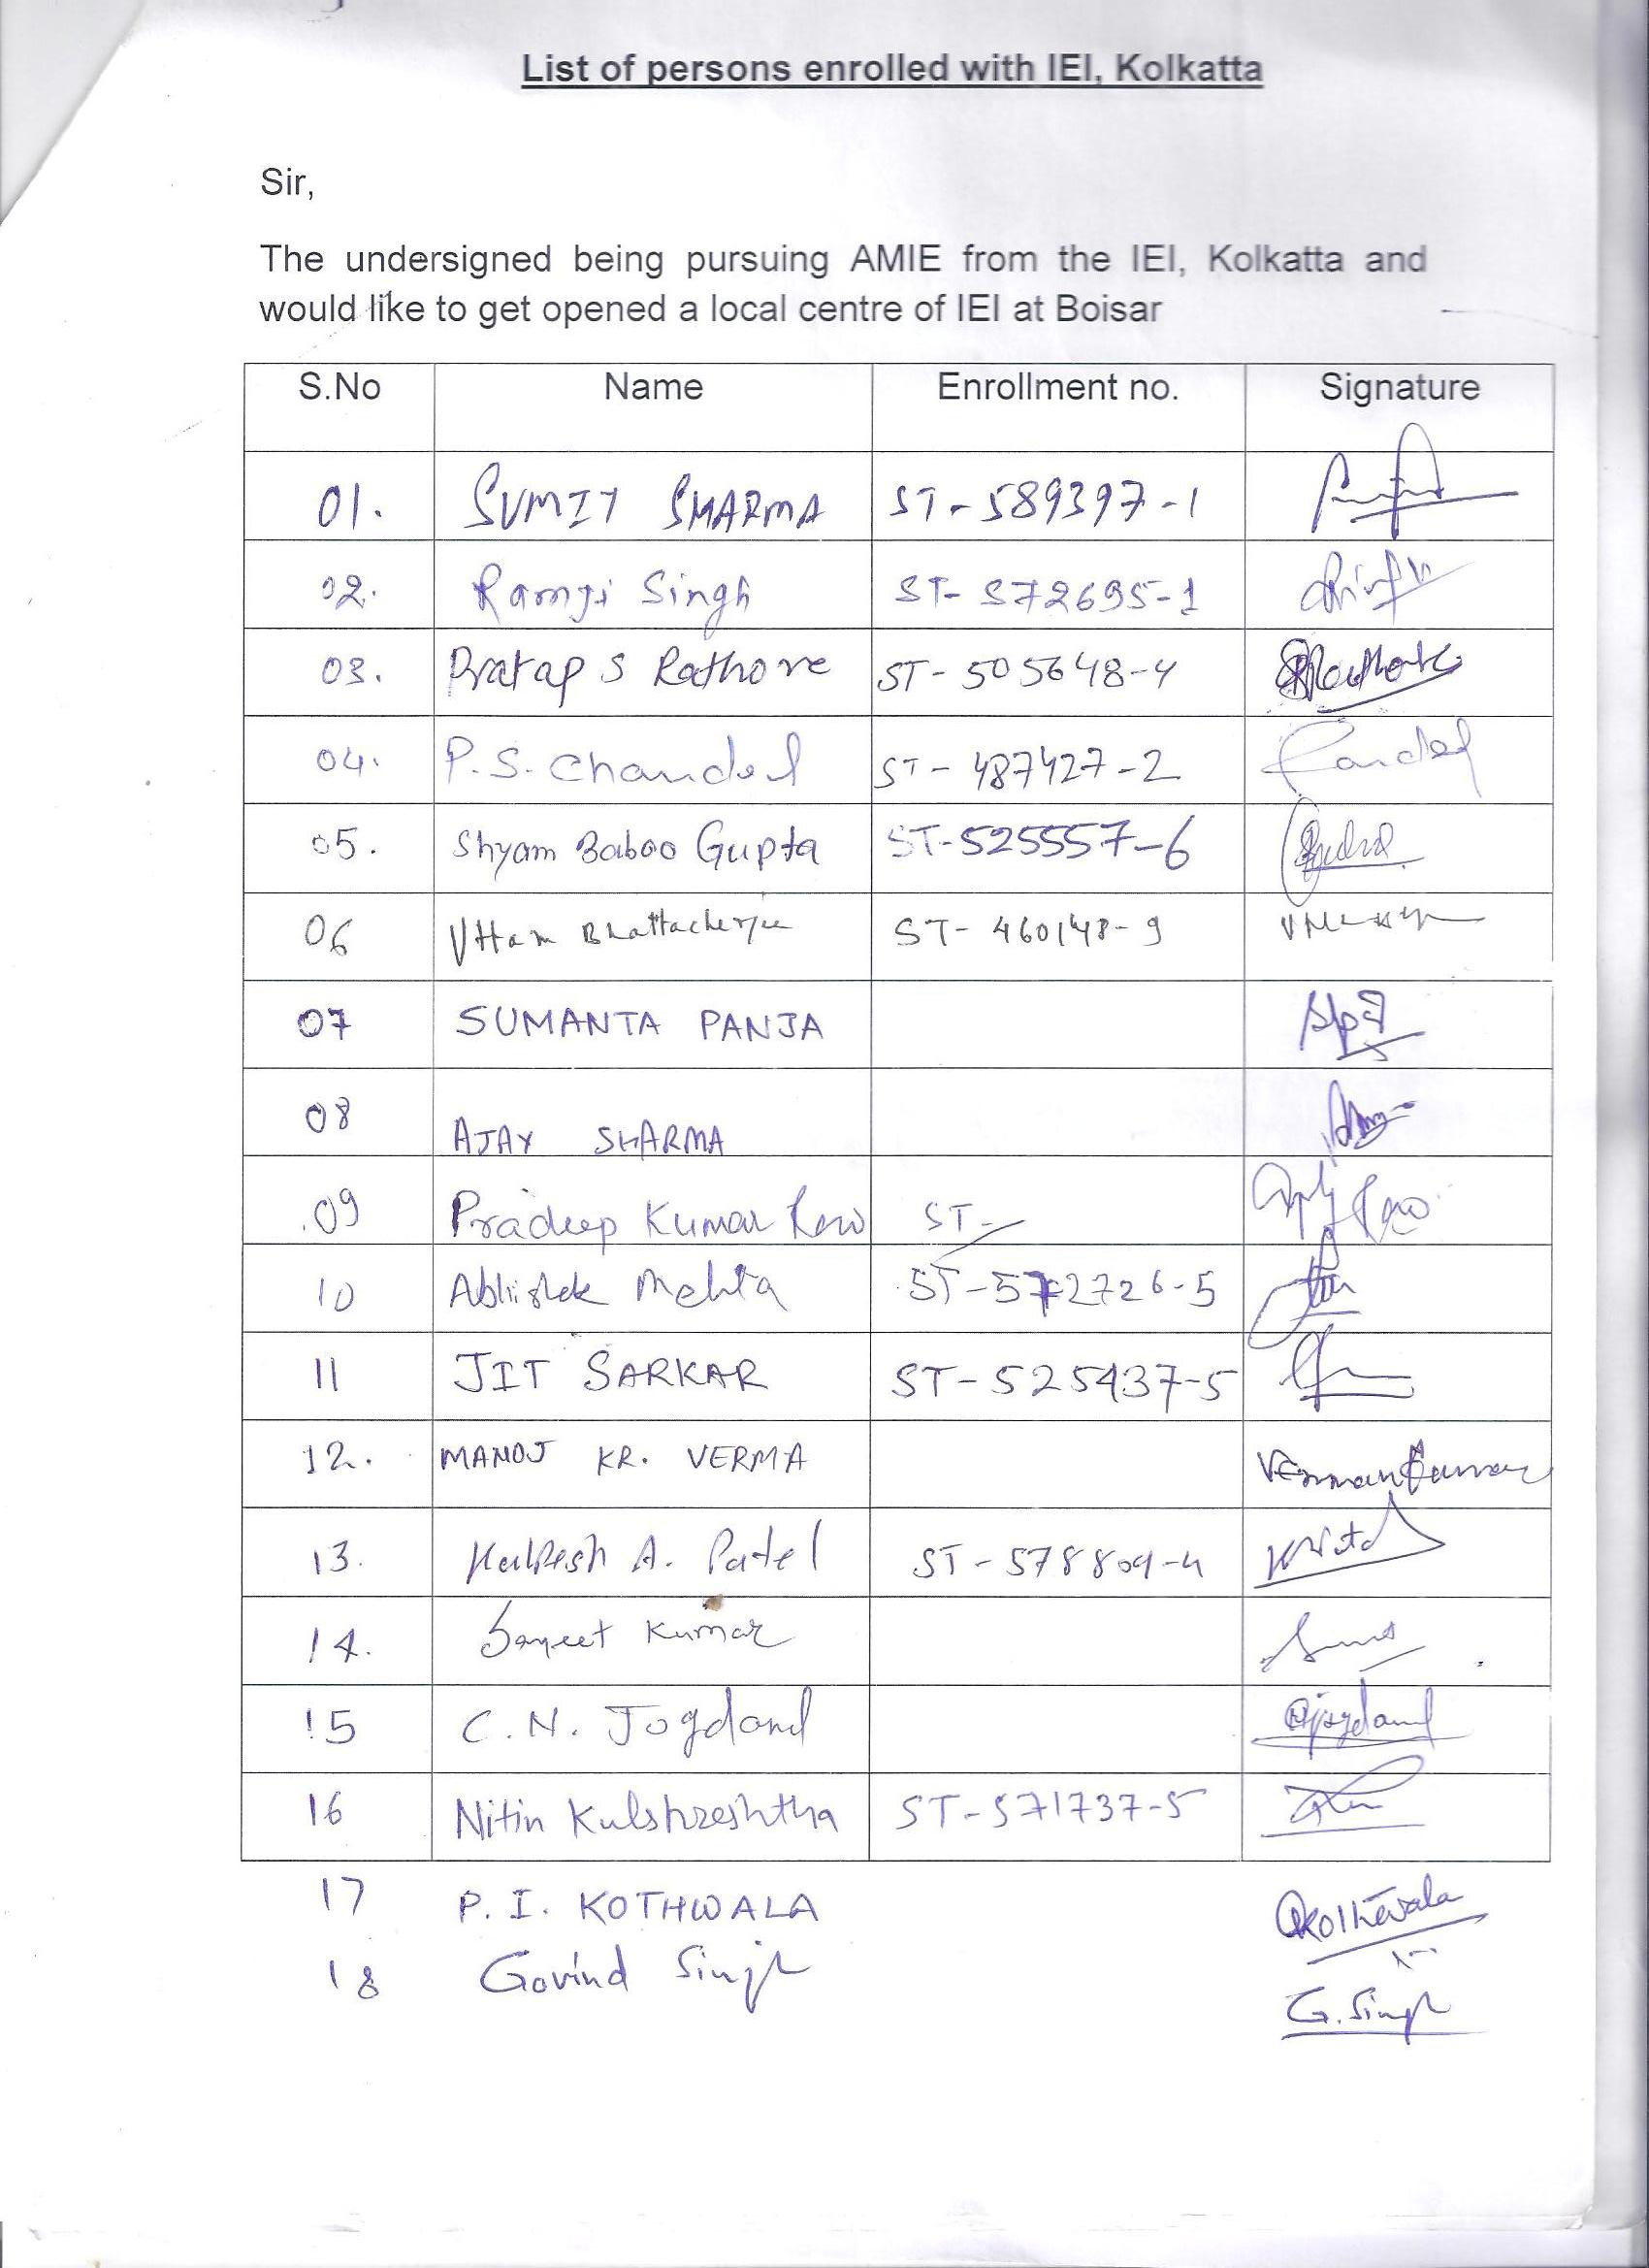 List of persons enrolled with IEI, Kolkatta
Sir,
The undersigned being pursuing AMIE from the IEI, Kolkatta and
would like to get opened a local centre of IEI at Boisar
S.No Name Enrollment no. Signature
01. SUMIT SHARMA ST-589397-1
02. Ramji Singh ST-572695-1
03. Pratap S Rathore ST-505648-4
04. P.S. Chandel ST-487427-2
05. Shyam Baboo Gupta ST-525557-6
06 Uttam Bhattacherjee ST-460148-9
07 SUMANTA PANJA
08 AJAY SHARMA
09 Pradeep Kumar ST-
10 Abhishek Mehta ST-572726-5
11 JIT SARKAR ST-525437-5
12. MANOJ KR. VERMA
13. Kalpesh A. Patel ST-578809-4
14. Kumar
15 C.N. Jogdand Jogdand
16 Nitin Kulshreshtha ST-571737-5
17 P. I. KOTHWALA
18 Govind Singh
G. Singh